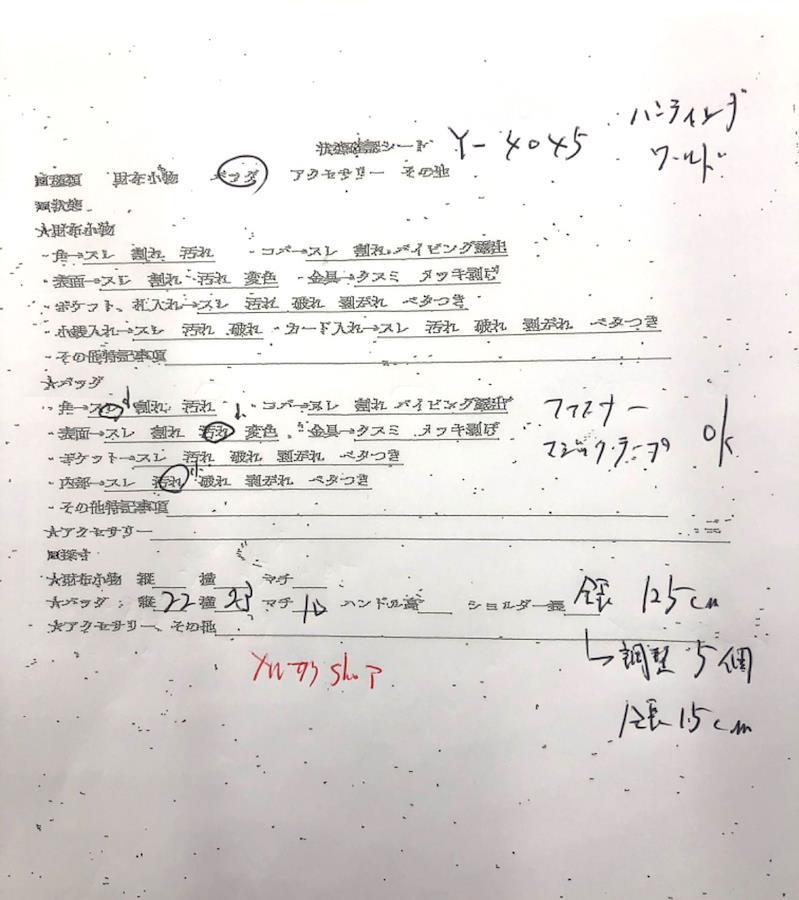 状態確認シート Y-4045 ハンティング
ワールド
■種類 財布小物 バッグ アクセサリー その他
■状態
★財布小物
・角→スレ 割れ 汚れ ・コバ→スレ 割れ パイピング露出
・表面→スレ 割れ 汚れ 変色 ・金具→クスミ メッキ剥げ
・ポケット、札入れ→スレ 汚れ 破れ 剥がれ ベタつき
・小銭入れ→スレ 汚れ 破れ ・カード入れ→スレ 汚れ 破れ 剥がれ ベタつき
・その他特記事項
★バッグ
・角→スレ 割れ 汚れ ・コバ→スレ 割れ パイピング露出 ファスナー
・表面→スレ 割れ 汚れ 変色 ・金具→クスミ メッキ剥げ マジックテープ ok
・ポケット→スレ 汚れ 破れ 剥がれ ベタつき
・内部→スレ 汚れ 破れ 剥がれ ベタつき
・その他特記事項
★アクセサリー
■採寸
★財布小物 縦 横 マチ
★バッグ 縦 22 横 マチ 10 ハンドル高 ショルダー長 全長 125cm
★アクセサリー、その他
調整 5個
全長 15cm
shop